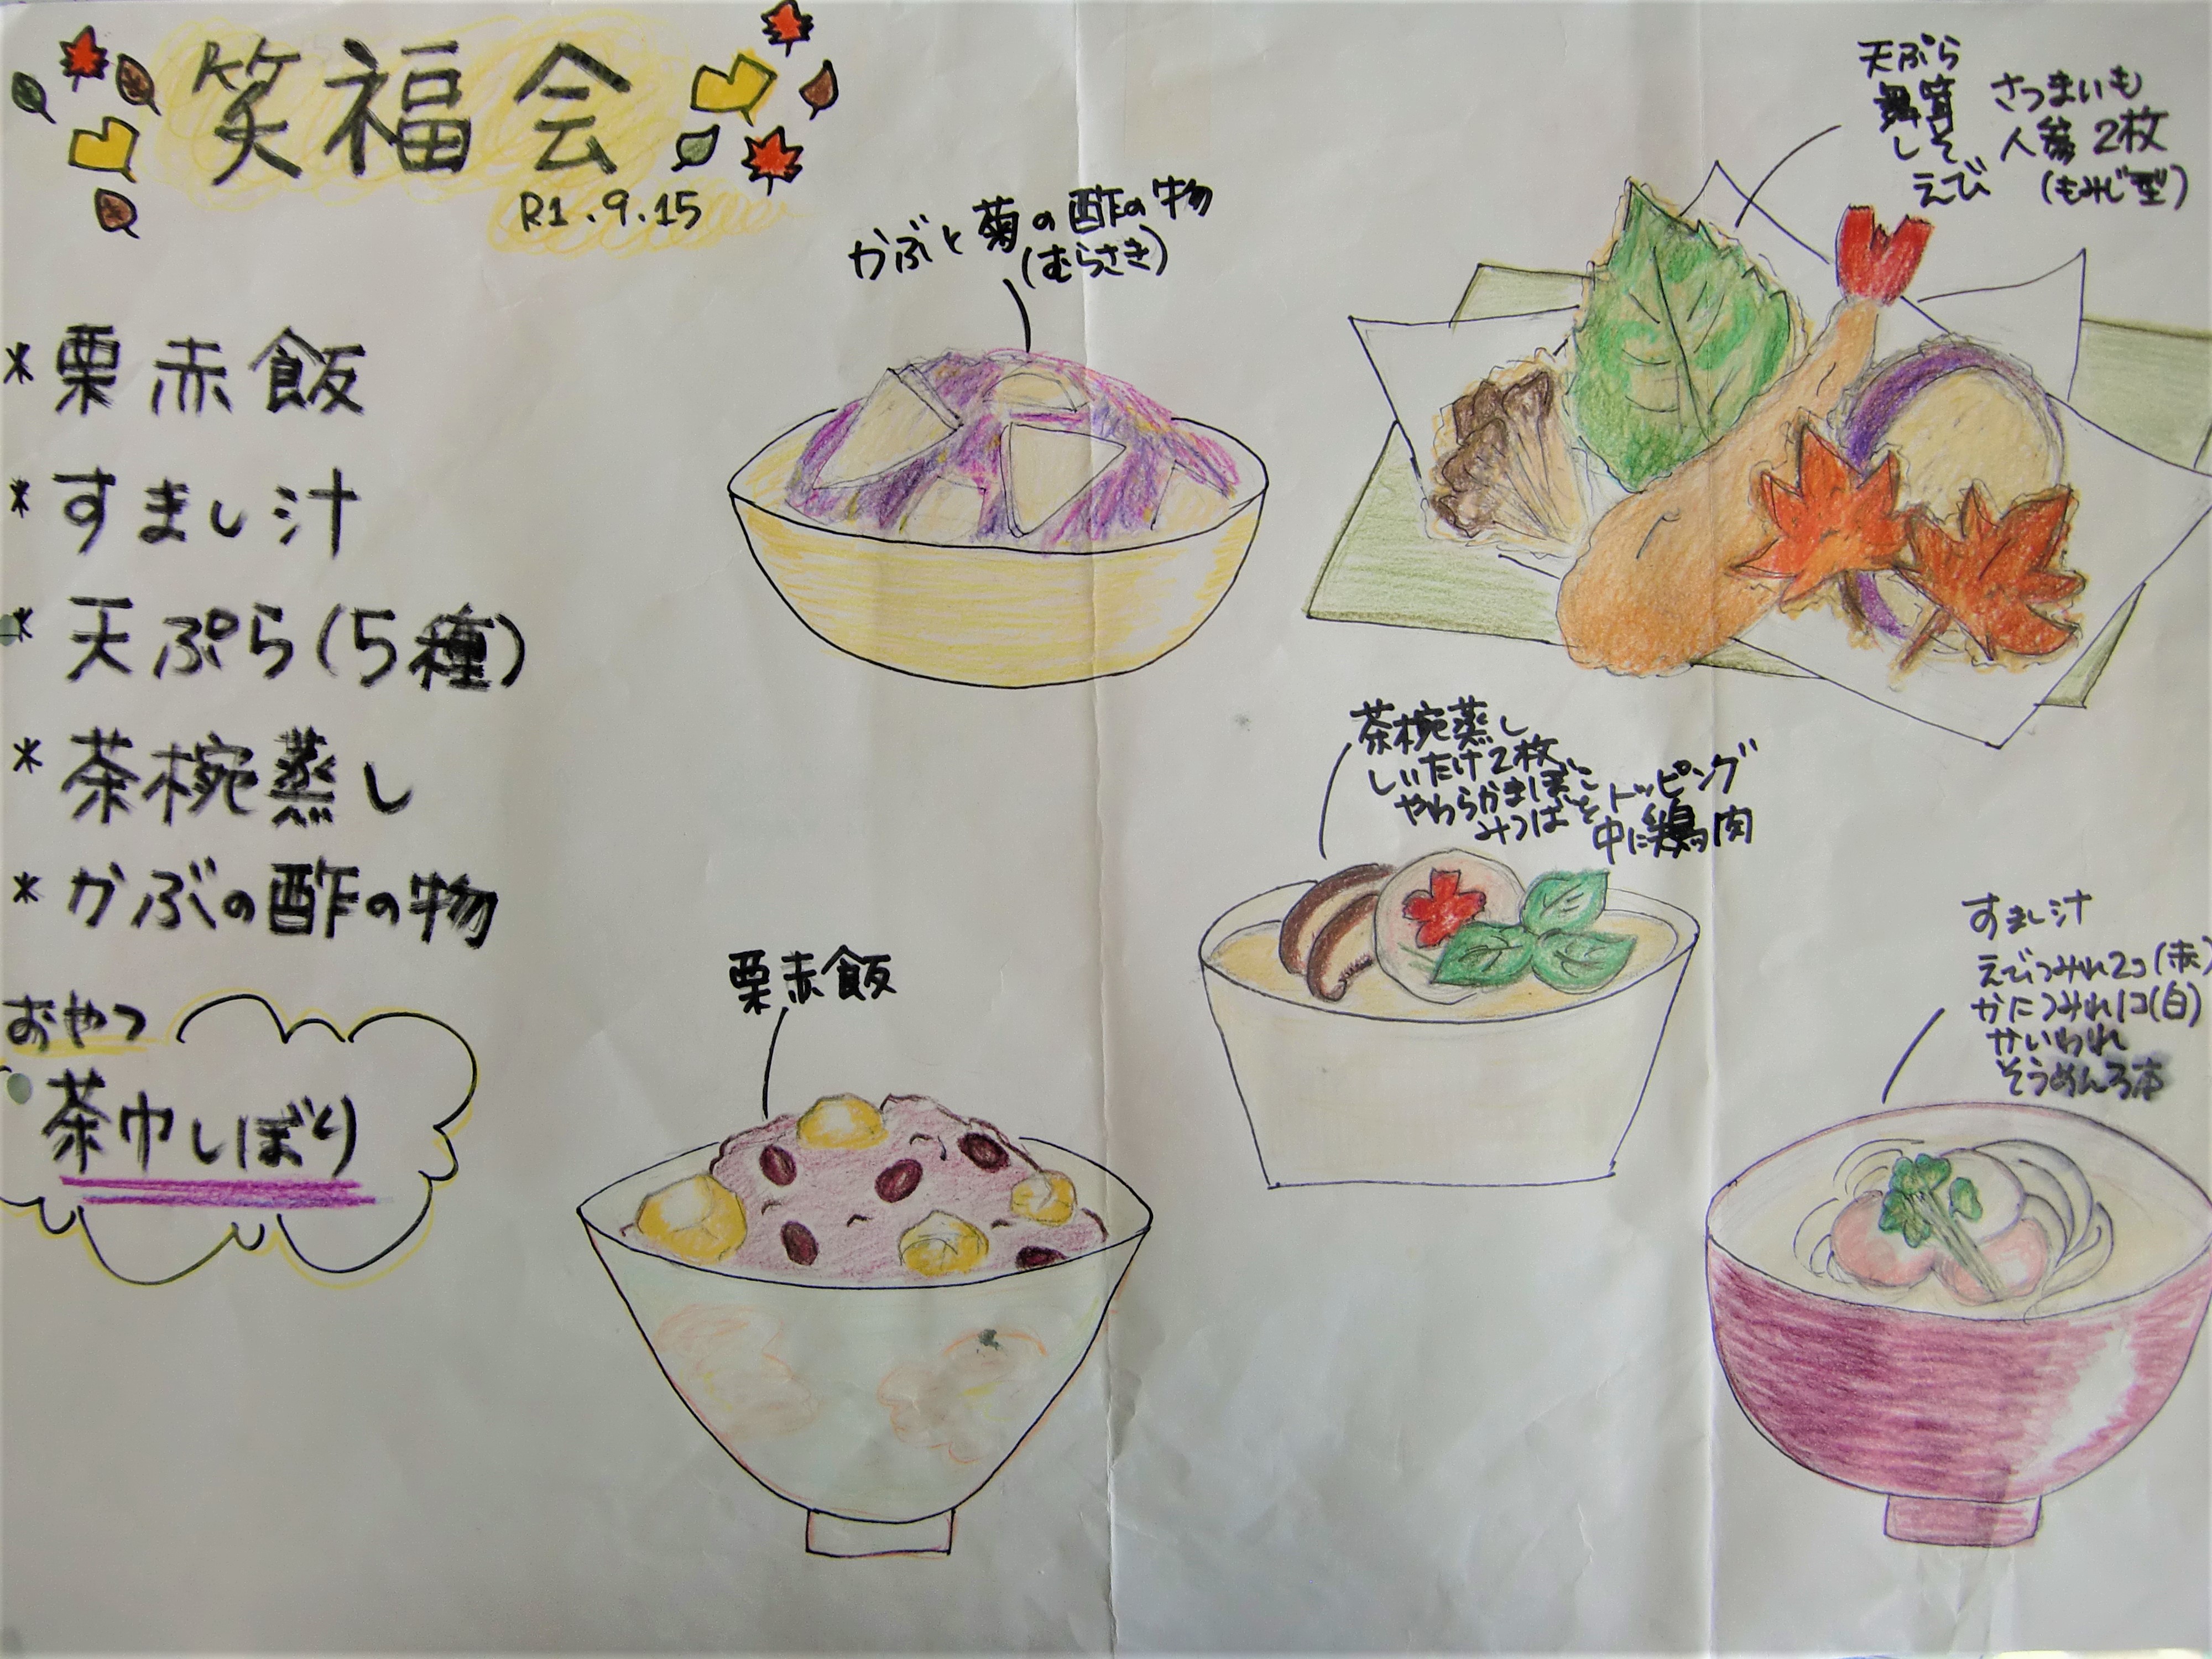 笑福会
R1.9.15
*栗赤飯
*すまし汁
*天ぷら(5種)
*茶椀蒸し
*かぶの酢の物
おやつ
茶巾しぼり
かぶと菊の酢の物
(むらさき)
天ぷら
舞茸
しそ
えび
さつまいも
人参2枚
(もみじ型)
茶椀蒸し
しいたけ2枚
やわらかまぼこ
みつばをトッピング
中に鶏肉
栗赤飯
すまし汁
えびつみれ2コ(赤)
かにつみれ1コ(白)
かいわれ
そうめん3本